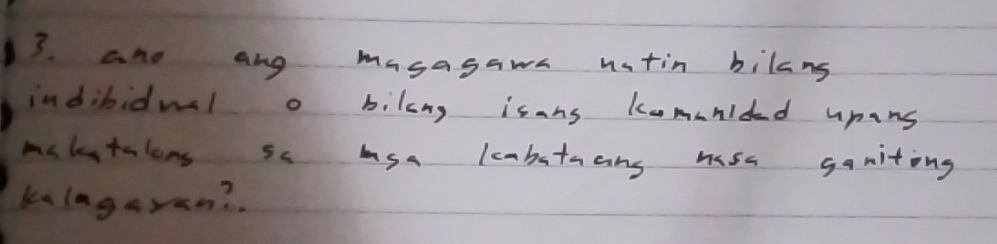 3. ano ang magagawa natin bilang
indibidwal o bilang isang komunidad upang
makatulong sa mga kabataang nasa ganitong
kalagayan?.